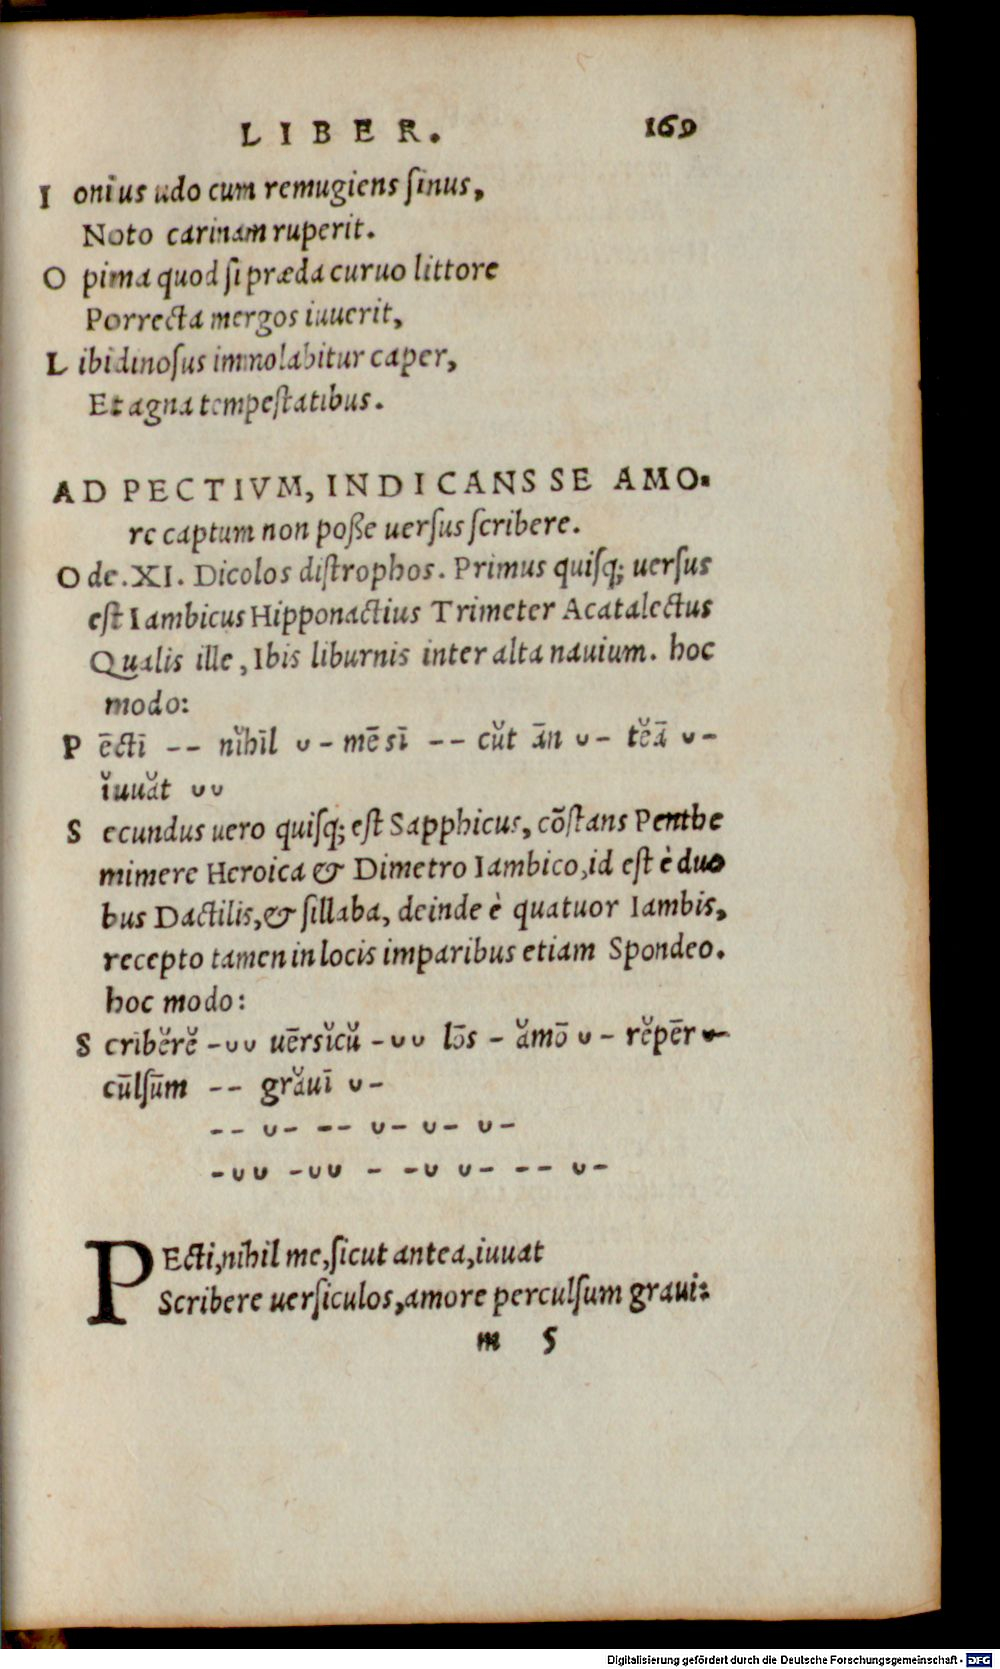 LIBER. 169
I onius udo cum remugiens ſinus,
Noto carinam ruperit.
O pima quod ſi præda curuo littore
Porrecta mergos iuuerit,
L ibidinoſus immolabitur caper,
Et agna tempeſtatibus.
AD PECTIVM, INDICANS SE AMO-
re captum non poße uerſus ſcribere.
O de. XI. Dicolos diſtrophos. Primus quiſq; uerſus
eſt Iambicus Hipponactius Trimeter Acatalectus
Qualis ille, Ibis liburnis inter alta nauium. hoc
modo:
P ēctī -- nĭhīl ᴗ- mē sī -- cŭt ān ᴗ- tĕā ᴗ-
ĭuuăt ᴗᴗ
S ecundus uero quiſq; eſt Sapphicus, cōſtans Penthe
mimere Heroica & Dimetro Iambico, id eſt è duo
bus Dactilis, & ſillaba, deinde è quatuor Iambis,
recepto tamen in locis imparibus etiam Spondeo.
hoc modo:
S crībĕrĕ -ᴗᴗ uērsĭcŭ -ᴗᴗ lōs - ămō ᴗ- rĕpēr ᴗ-
cūlſūm -- grăuī ᴗ-
-- ᴗ- -- ᴗ- ᴗ- ᴗ-
-ᴗᴗ -ᴗᴗ - -ᴗ ᴗ- -- ᴗ-
PEcti, nihil me, ſicut antea, iuuat
Scribere uerſiculos, amore perculſum graui:
m 5
Digitalisierung gefördert durch die Deutsche Forschungsgemeinschaft - DFG